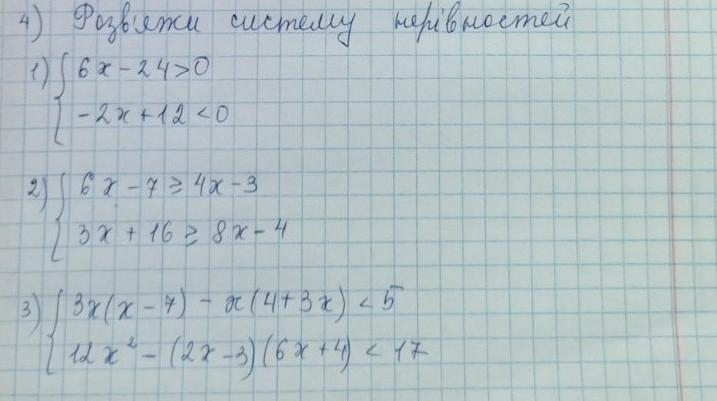 4) Розв'яжи систему нерівностей
1) { 6x - 24 > 0
-2x + 12 < 0
2) { 6x - 7 ≥ 4x - 3
3x + 16 ≥ 8x - 4
3) { 3x(x - 7) - x(4 + 3x) < 5
12x² - (2x - 3)(6x + 4) < 17